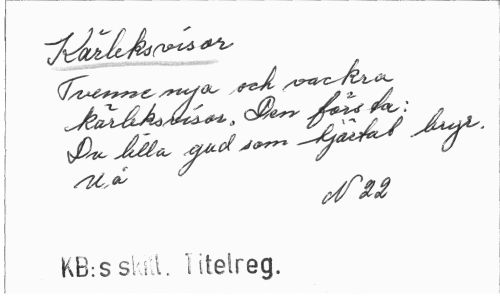 Kärleksvisor
Tvenne nya och vackra
kärleksvisor. Den första:
Du lilla gud som hjärtat bryr.
U.å
N 22
KB:s skill. Titelreg.